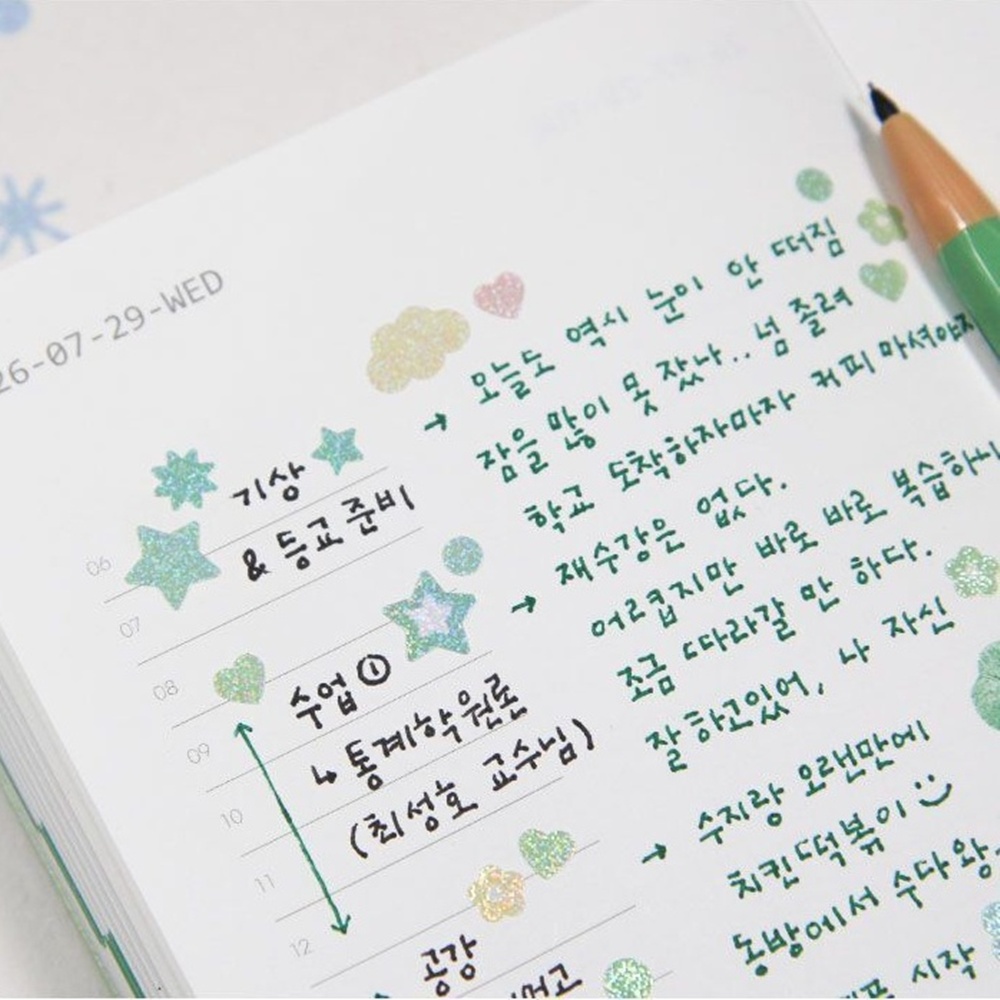 26-07-29-WED
06
07
08
09
10
11
12
기상
& 등교 준비
수업 ①
↳ 통계학 원론
(최성호 교수님)
공강
→ 오늘도 역시 눈이 안 떠짐
잠을 많이 못 잤나.. 넘 졸려
학교 도착하자마자 커피 마셔야지
→ 재수강은 없다.
어렵지만 바로 바로 복습하시
조금 따라갈 만 하다.
잘하고있어, 나 자신
→ 수지랑 오랜만에
치킨떡볶이
동방에서 수다 왕
시작